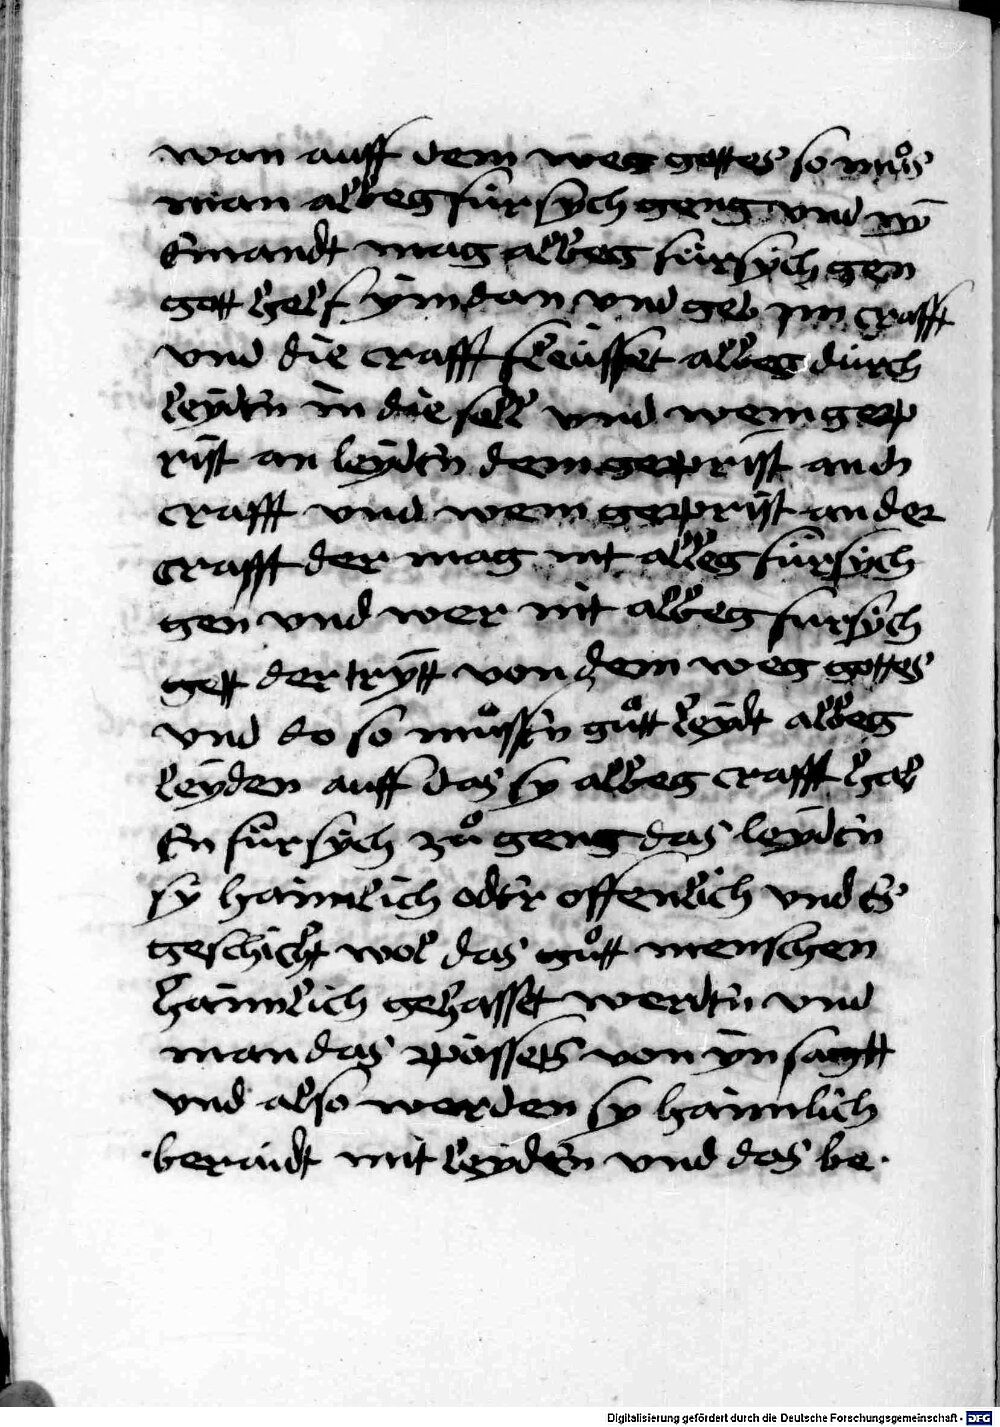 wan auff dem weg gottes so muͦs
man albeg fürsÿch geng vnd nÿ
emandt mag albeg fürsÿch gen
gott helf ÿm dan vnd geb im crafft
vnd die crafft fleüsset albeg dürch
leÿden in die sell vnd wem gep
rist an leÿden dem geprist an d
crafft vnd wem geprist an der
crafft der mag nit albeg fürsÿch
gen vnd wer nit albeg fürsÿch
gett der trÿtt von dem weg gottes
vnd do so muͦssen guͦtt leÿdt albeg
leÿden auff das sy albeg crafft hab
en fürsÿch zuͦ geng das leÿden
sy haimlich oder offenlich vnd es
geschicht wol das guͦtt menschen
haimlich gehasset werden vnd
man das possest von ÿn sagtt
vnd also werden sy haimlich
beraidt mit leÿden vnd das be
Digitalisierung gefördert durch die Deutsche Forschungsgemeinschaft - DFG